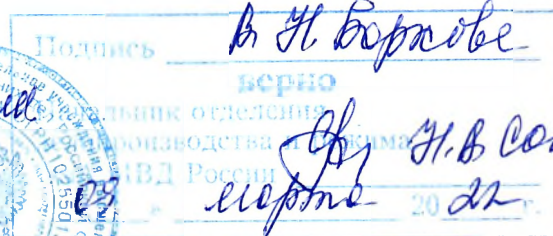 Подпись В Н Боркове
верно
льник отделения
роизводства и режима Н.В Сол
ВД России
09 » марта 20 22 г.